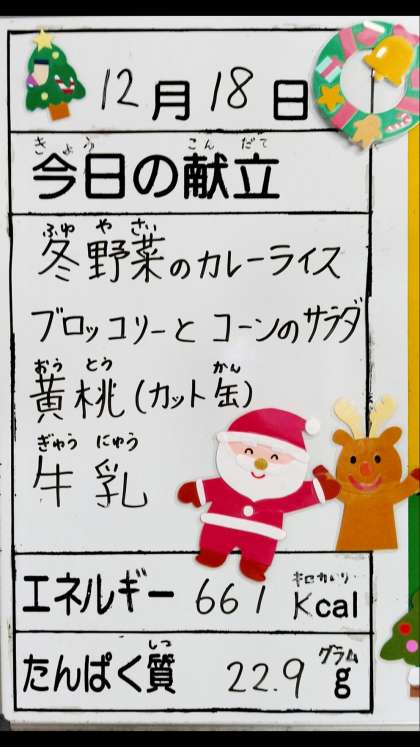 12月18日
きょう こんだて
今日の献立
ふゆ や さい
冬野菜のカレーライス
ブロッコリーとコーンのサラダ
おう とう かん
黄桃(カット缶)
ぎゅう にゅう
牛乳
キロカロリー
エネルギー 661 Kcal
しつ グラム
たんぱく質 22.9 g